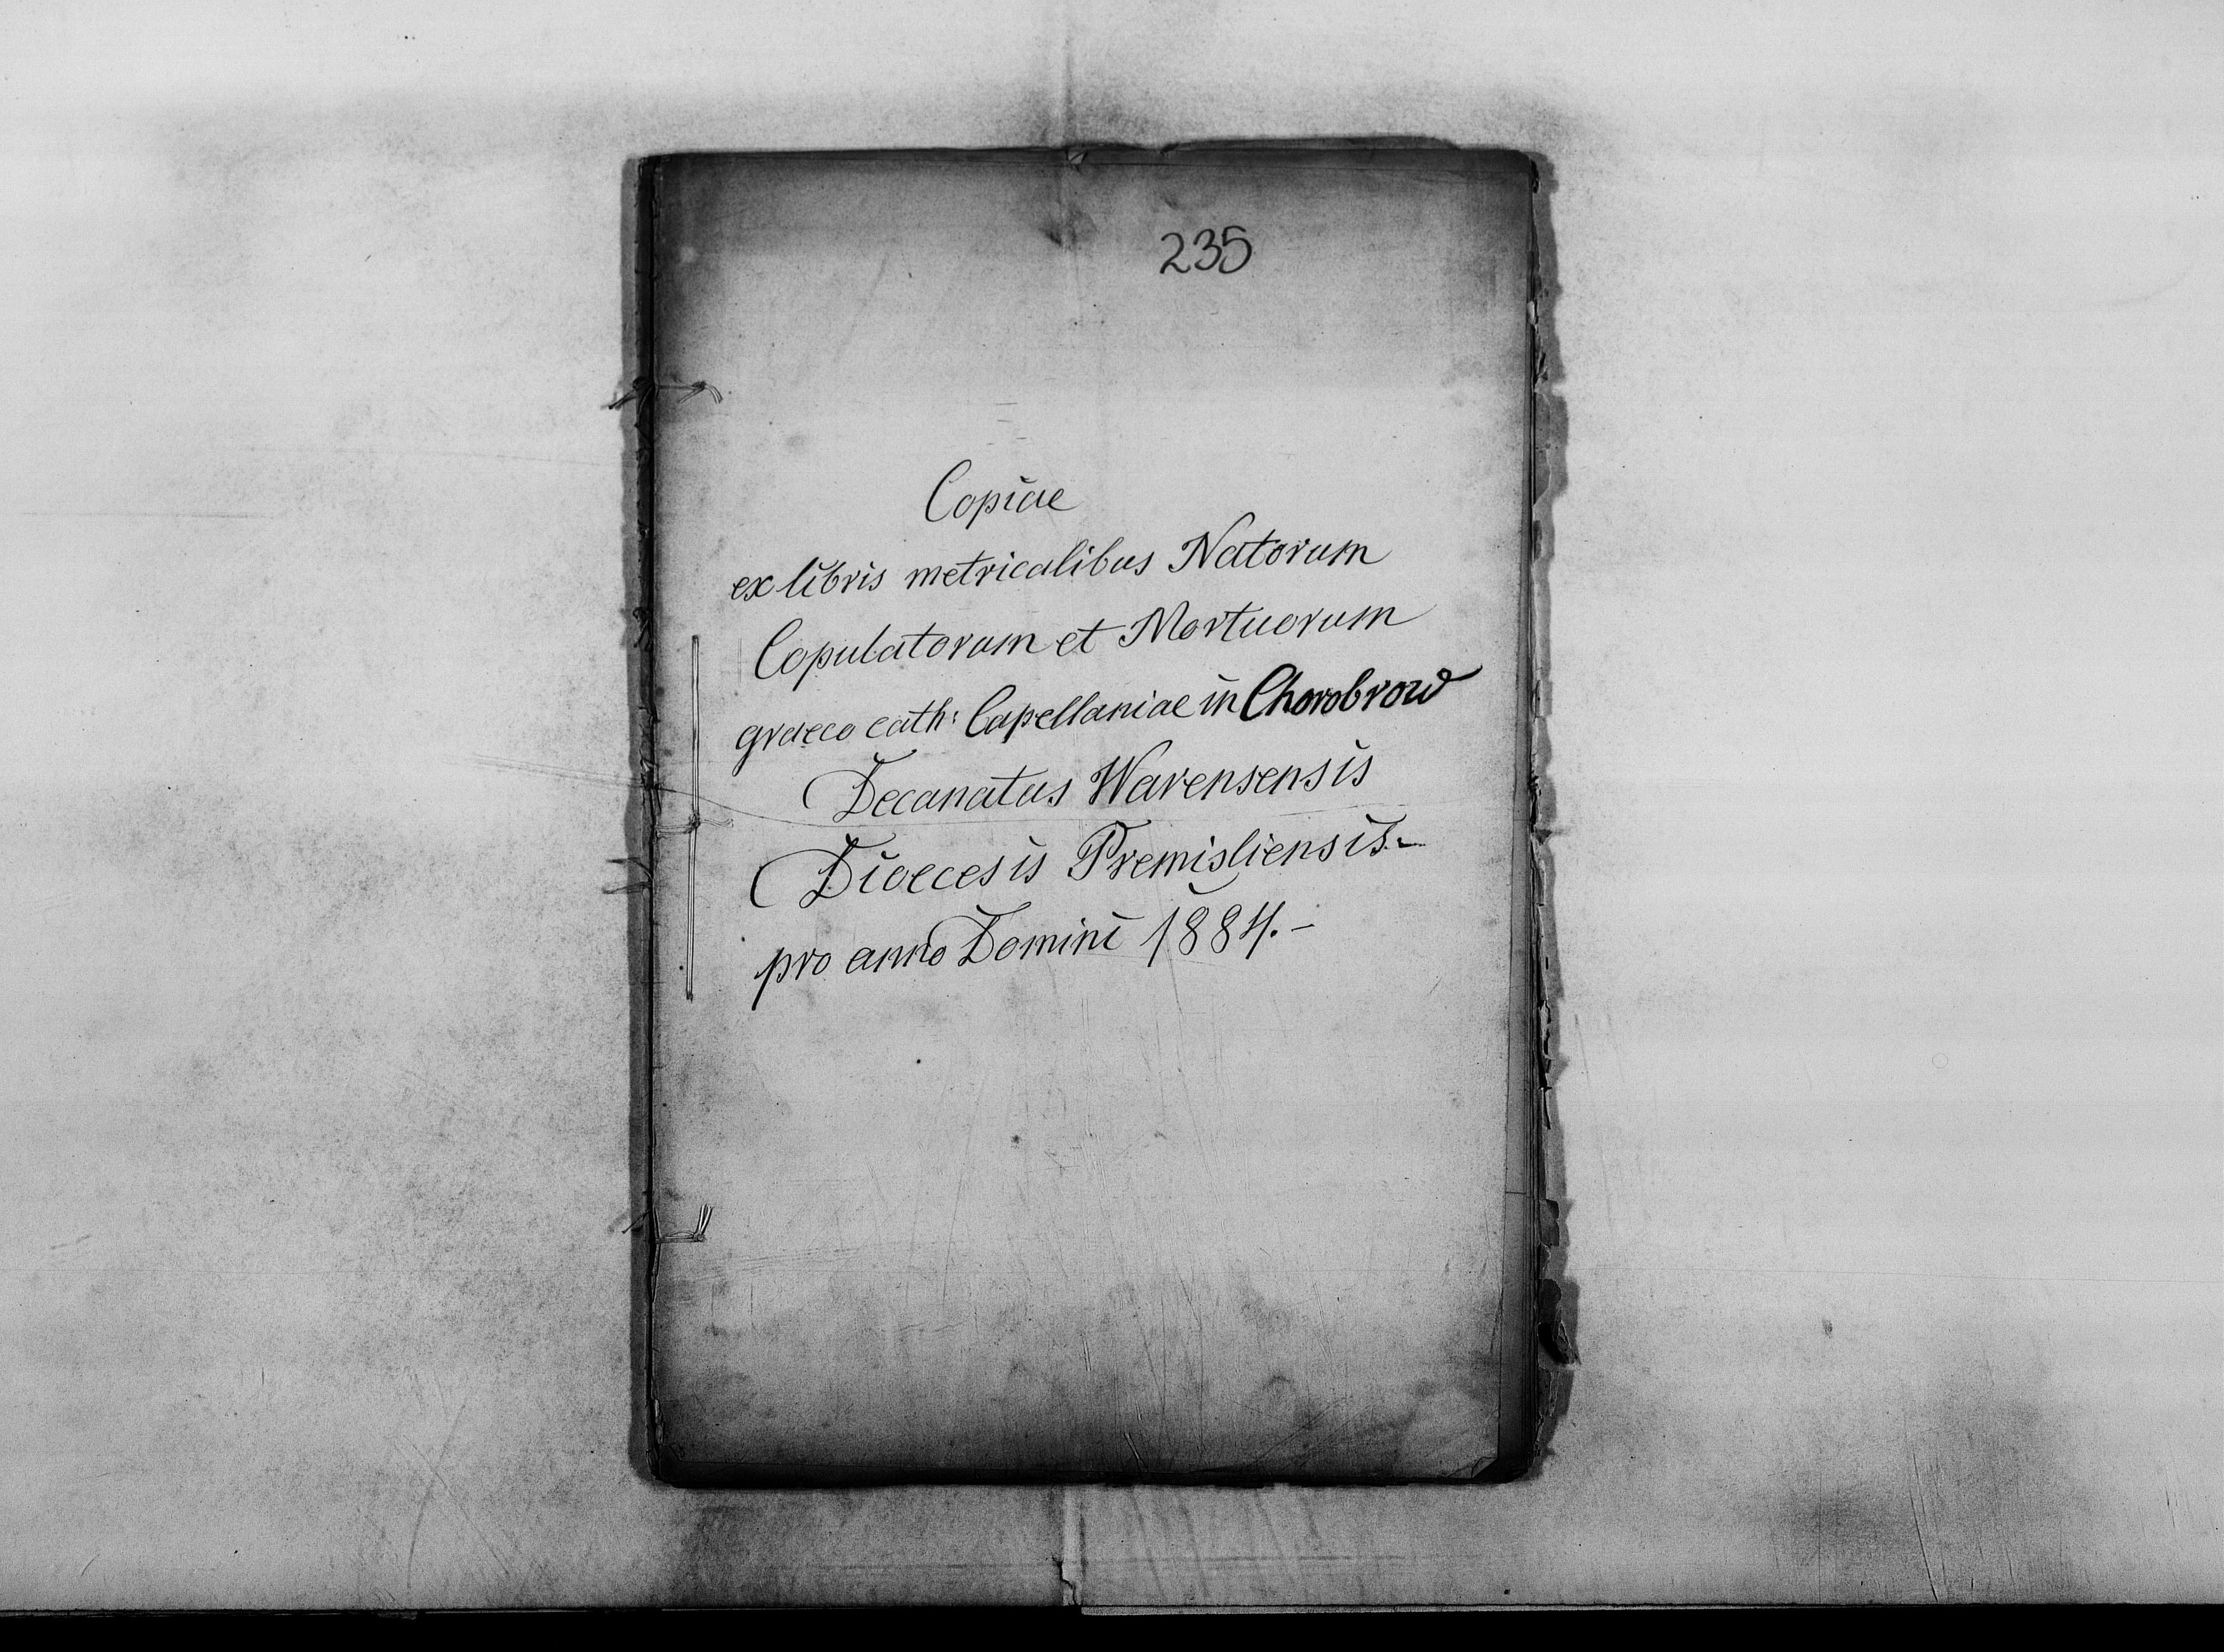 235
Copiae
ex libris metricalibus Natorum
Copulatorum et Mortuorum
graeco cath: Capellaniae in Chorobrow
Decanatus Warensensis
Dioecesis Premisliensis.-
pro anno Domini 1884.-